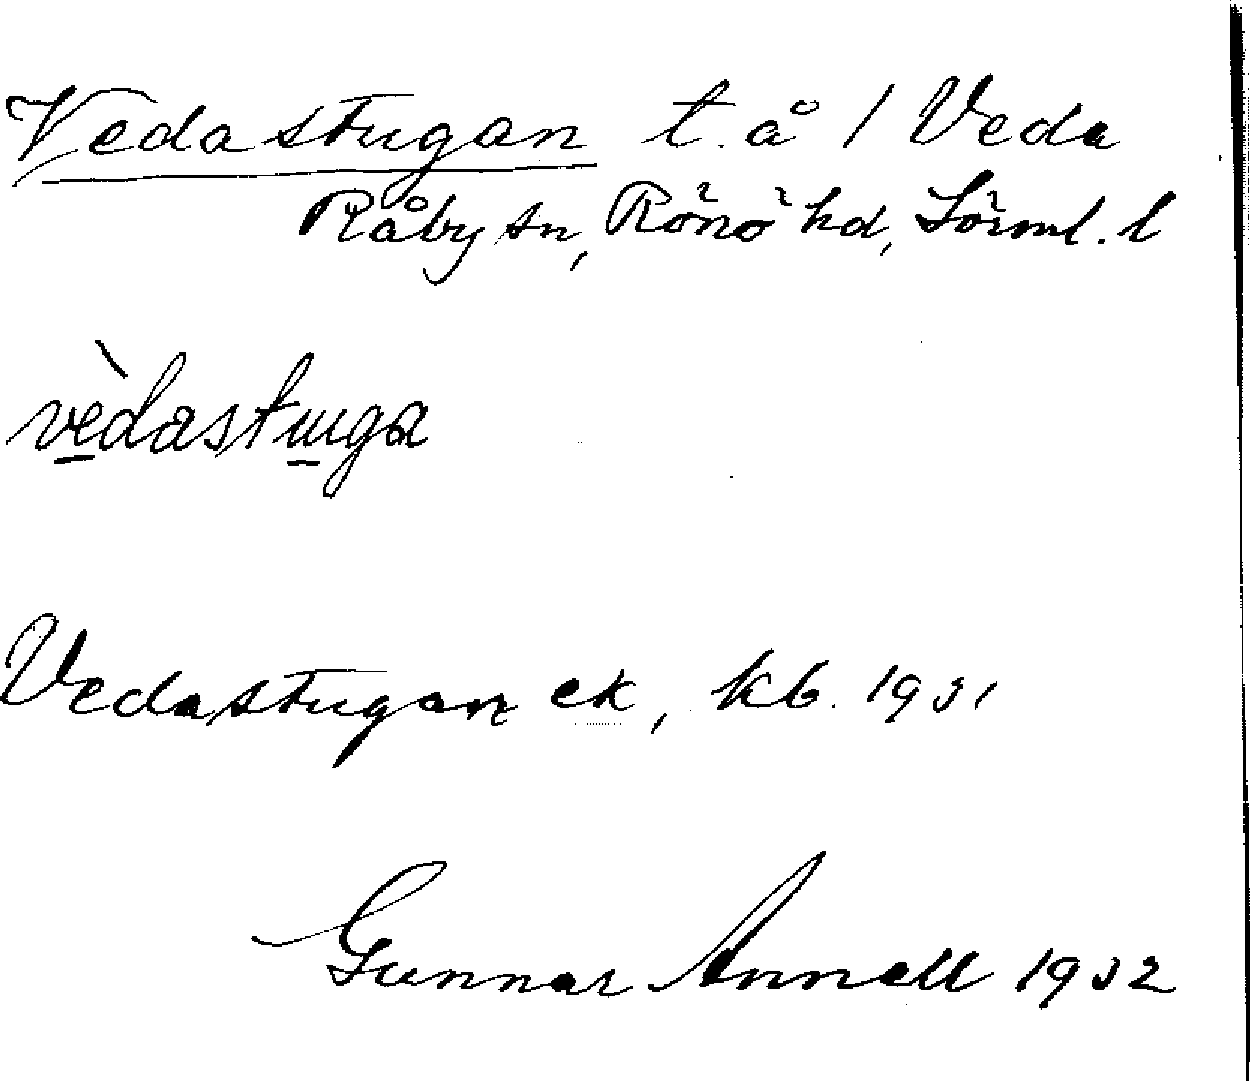 Vedastugan t. å 1 Veda
Råby sn, Rönö hd, Sörml. l
vèdastuga
Vedastugan ek, kb. 1931
Gunnar Annell 1932